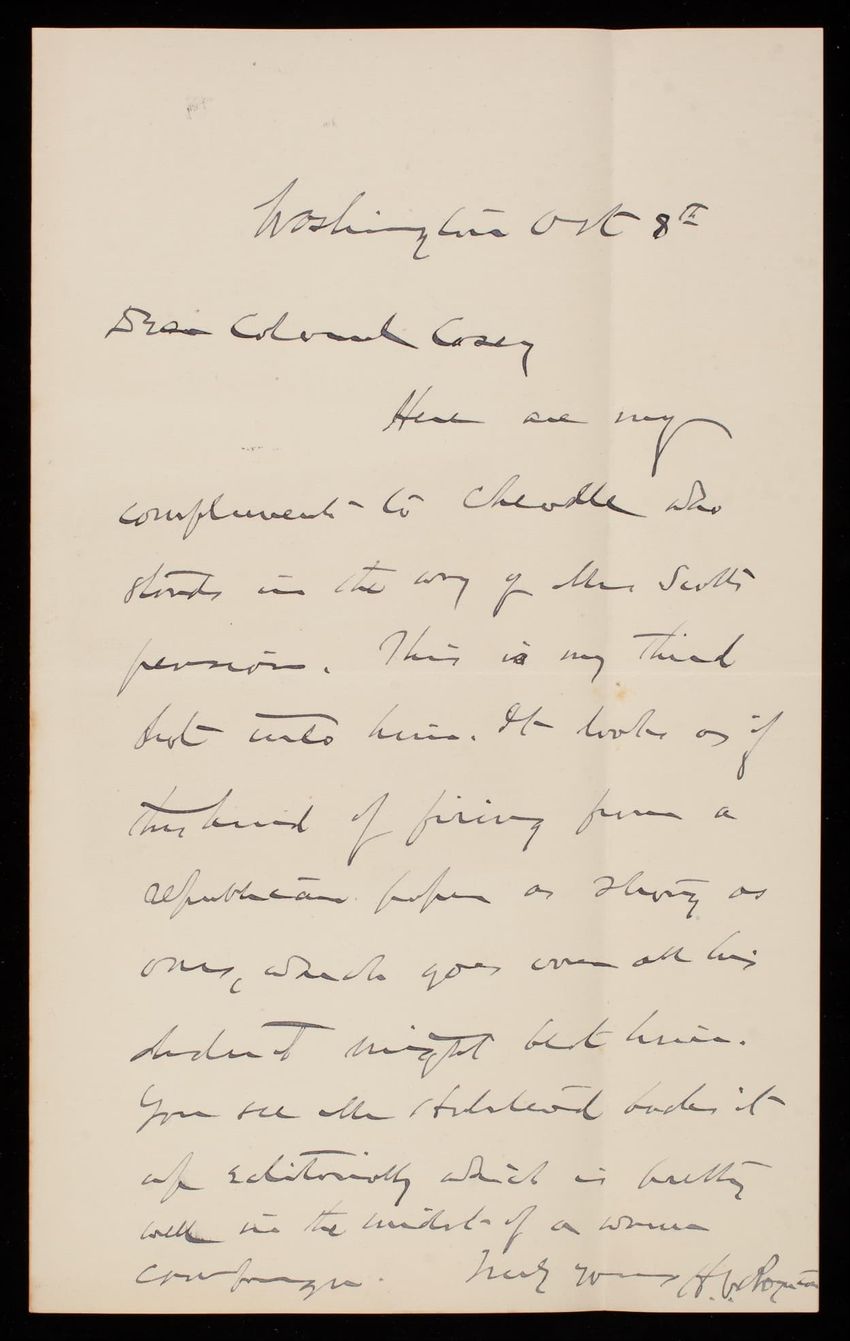 Washington Oct 8th
Dear Colonel Casey
Here are my
compliments to Cheadle who
stands in the way of Mrs Scotts
pension. This is my third
shot into him. It looks as if
this kind of firing from a
republican paper as strong as
ours, which goes over all his
district might beat him.
You see Mr Halstead backs it
up editorially which is pretty
well in the midst of a warm
campaign. Truly yours H. V. Boynton